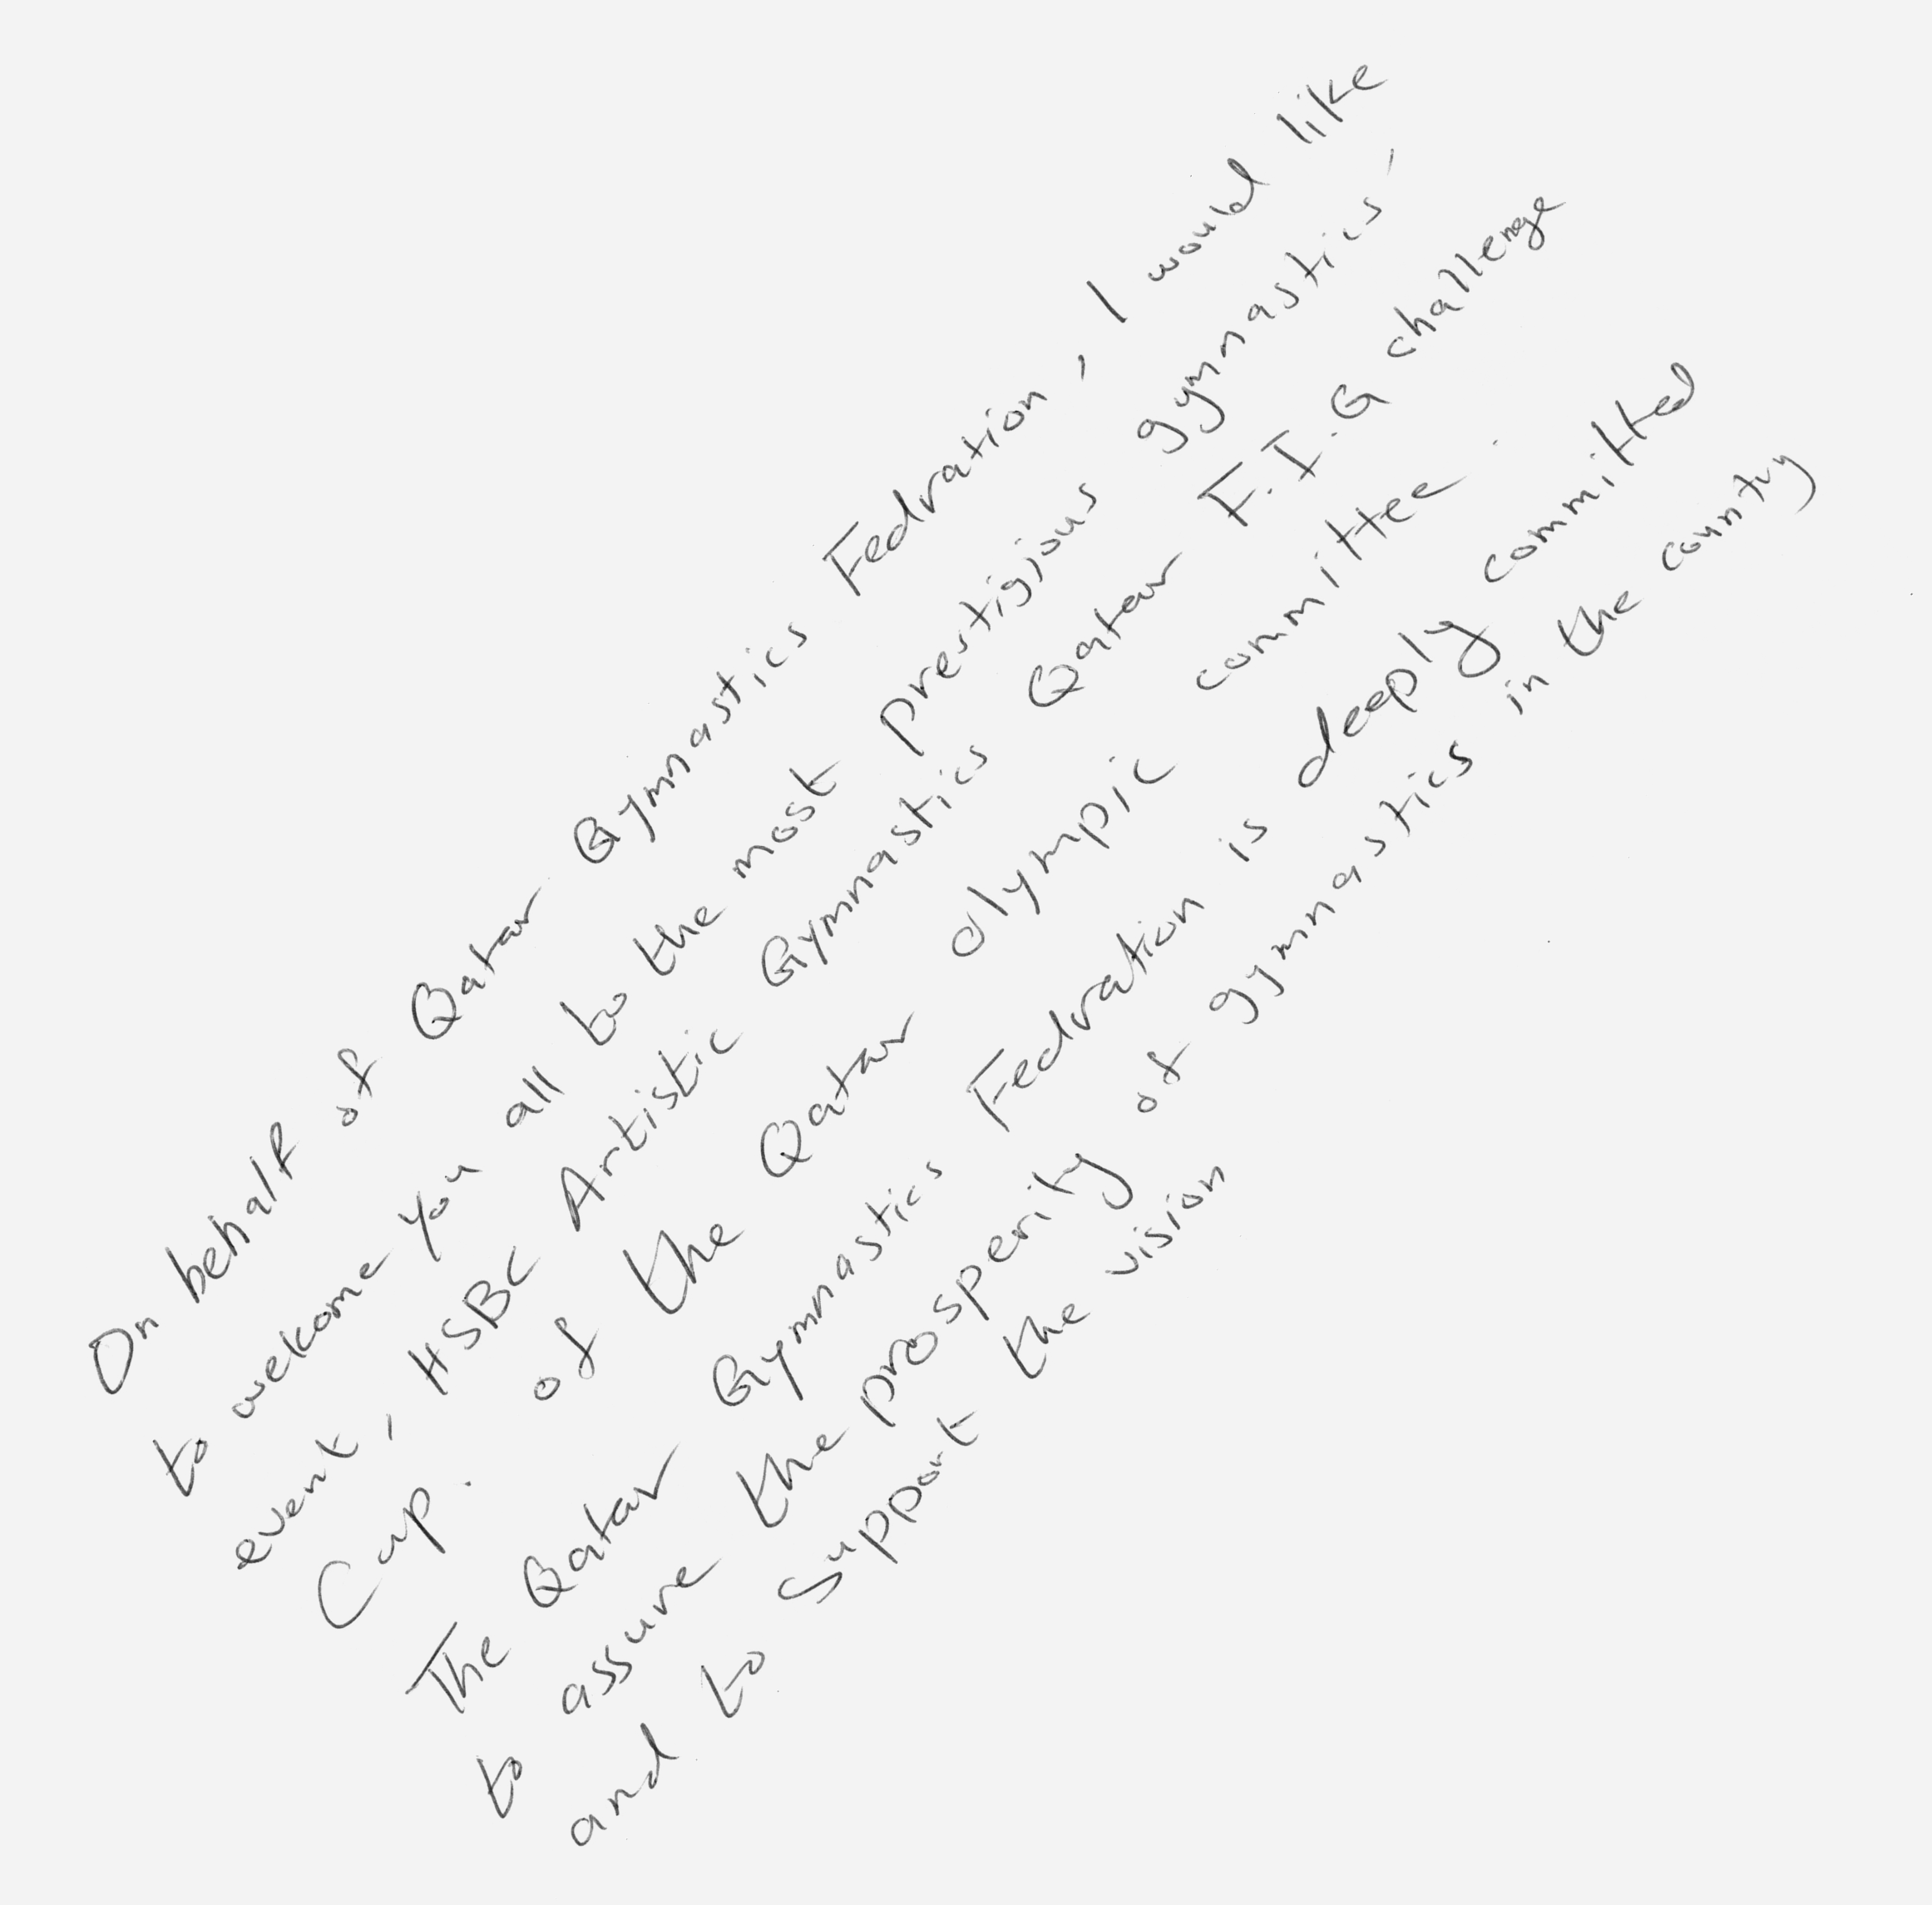 On behalf of Qatar Gymnastics Fedration, I would like
to welcome you all to the most prestigious gymnastics,
event, HSBC Artistic Gymnastics Qatar F.I.G challenge
Cup. of the Qatar olympic committee.
The Qatar Gymnastics Fedration is deeply committed
to assure the prosperity of gymnastics in the country
and to support the vision